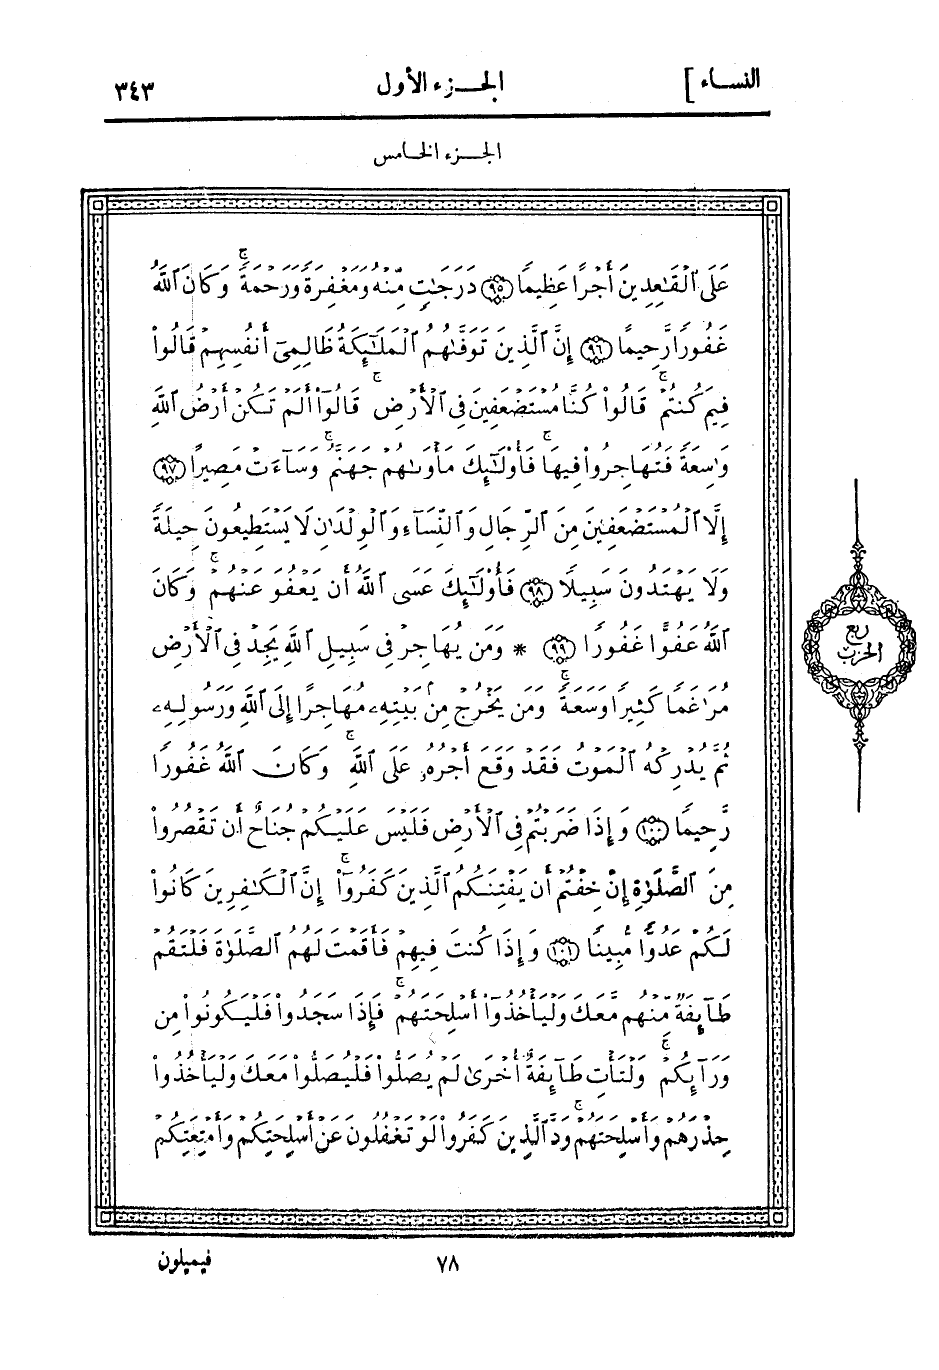 النساء ] الجزء الأول ٣٤٣
الجزء الخامس
عَلَى ٱلْقَٰعِدِينَ أَجْرًا عَظِيمًا ﴿٩٥﴾ دَرَجَٰتٍ مِّنْهُ وَمَغْفِرَةً وَرَحْمَةً ۚ وَكَانَ ٱللَّهُ
غَفُورًا رَّحِيمًا ﴿٩٦﴾ إِنَّ ٱلَّذِينَ تَوَفَّىٰهُمُ ٱلْمَلَٰٓئِكَةُ ظَالِمِىٓ أَنفُسِهِمْ قَالُوا۟
فِيمَ كُنتُمْ ۖ قَالُوا۟ كُنَّا مُسْتَضْعَفِينَ فِى ٱلْأَرْضِ ۚ قَالُوٓا۟ أَلَمْ تَكُنْ أَرْضُ ٱللَّهِ
وَٰسِعَةً فَتُهَاجِرُوا۟ فِيهَا ۚ فَأُو۟لَٰٓئِكَ مَأْوَىٰهُمْ جَهَنَّمُ ۖ وَسَآءَتْ مَصِيرًا ﴿٩٧﴾
إِلَّا ٱلْمُسْتَضْعَفِينَ مِنَ ٱلرِّجَالِ وَٱلنِّسَآءِ وَٱلْوِلْدَٰنِ لَا يَسْتَطِيعُونَ حِيلَةً
وَلَا يَهْتَدُونَ سَبِيلًا ﴿٩٨﴾ فَأُو۟لَٰٓئِكَ عَسَى ٱللَّهُ أَن يَعْفُوَ عَنْهُمْ ۚ وَكَانَ
ٱللَّهُ عَفُوًّا غَفُورًا ﴿٩٩﴾ * وَمَن يُهَاجِرْ فِى سَبِيلِ ٱللَّهِ يَجِدْ فِى ٱلْأَرْضِ
مُرَٰغَمًا كَثِيرًا وَسَعَةً ۚ وَمَن يَخْرُجْ مِنۢ بَيْتِهِۦ مُهَاجِرًا إِلَى ٱللَّهِ وَرَسُولِهِۦ
ثُمَّ يُدْرِكْهُ ٱلْمَوْتُ فَقَدْ وَقَعَ أَجْرُهُۥ عَلَى ٱللَّهِ ۗ وَكَانَ ٱللَّهُ غَفُورًا
رَّحِيمًا ﴿١٠٠﴾ وَإِذَا ضَرَبْتُمْ فِى ٱلْأَرْضِ فَلَيْسَ عَلَيْكُمْ جُنَاحٌ أَن تَقْصُرُوا۟
مِنَ ٱلصَّلَوٰةِ إِنْ خِفْتُمْ أَن يَفْتِنَكُمُ ٱلَّذِينَ كَفَرُوٓا۟ ۚ إِنَّ ٱلْكَٰفِرِينَ كَانُوا۟
لَكُمْ عَدُوًّا مُّبِينًا ﴿١٠١﴾ وَإِذَا كُنتَ فِيهِمْ فَأَقَمْتَ لَهُمُ ٱلصَّلَوٰةَ فَلْتَقُمْ
طَآئِفَةٌ مِّنْهُم مَّعَكَ وَلْيَأْخُذُوٓا۟ أَسْلِحَتَهُمْ ۖ فَإِذَا سَجَدُوا۟ فَلْيَكُونُوا۟ مِن
وَرَآئِكُمْ ۖ وَلْتَأْتِ طَآئِفَةٌ أُخْرَىٰ لَمْ يُصَلُّوا۟ فَلْيُصَلُّوا۟ مَعَكَ وَلْيَأْخُذُوا۟
حِذْرَهُمْ وَأَسْلِحَتَهُمْ ۗ وَدَّ ٱلَّذِينَ كَفَرُوا۟ لَوْ تَغْفُلُونَ عَنْ أَسْلِحَتِكُمْ وَأَمْتِعَتِكُمْ
ربع
الحزب
٧٨ فيميلون